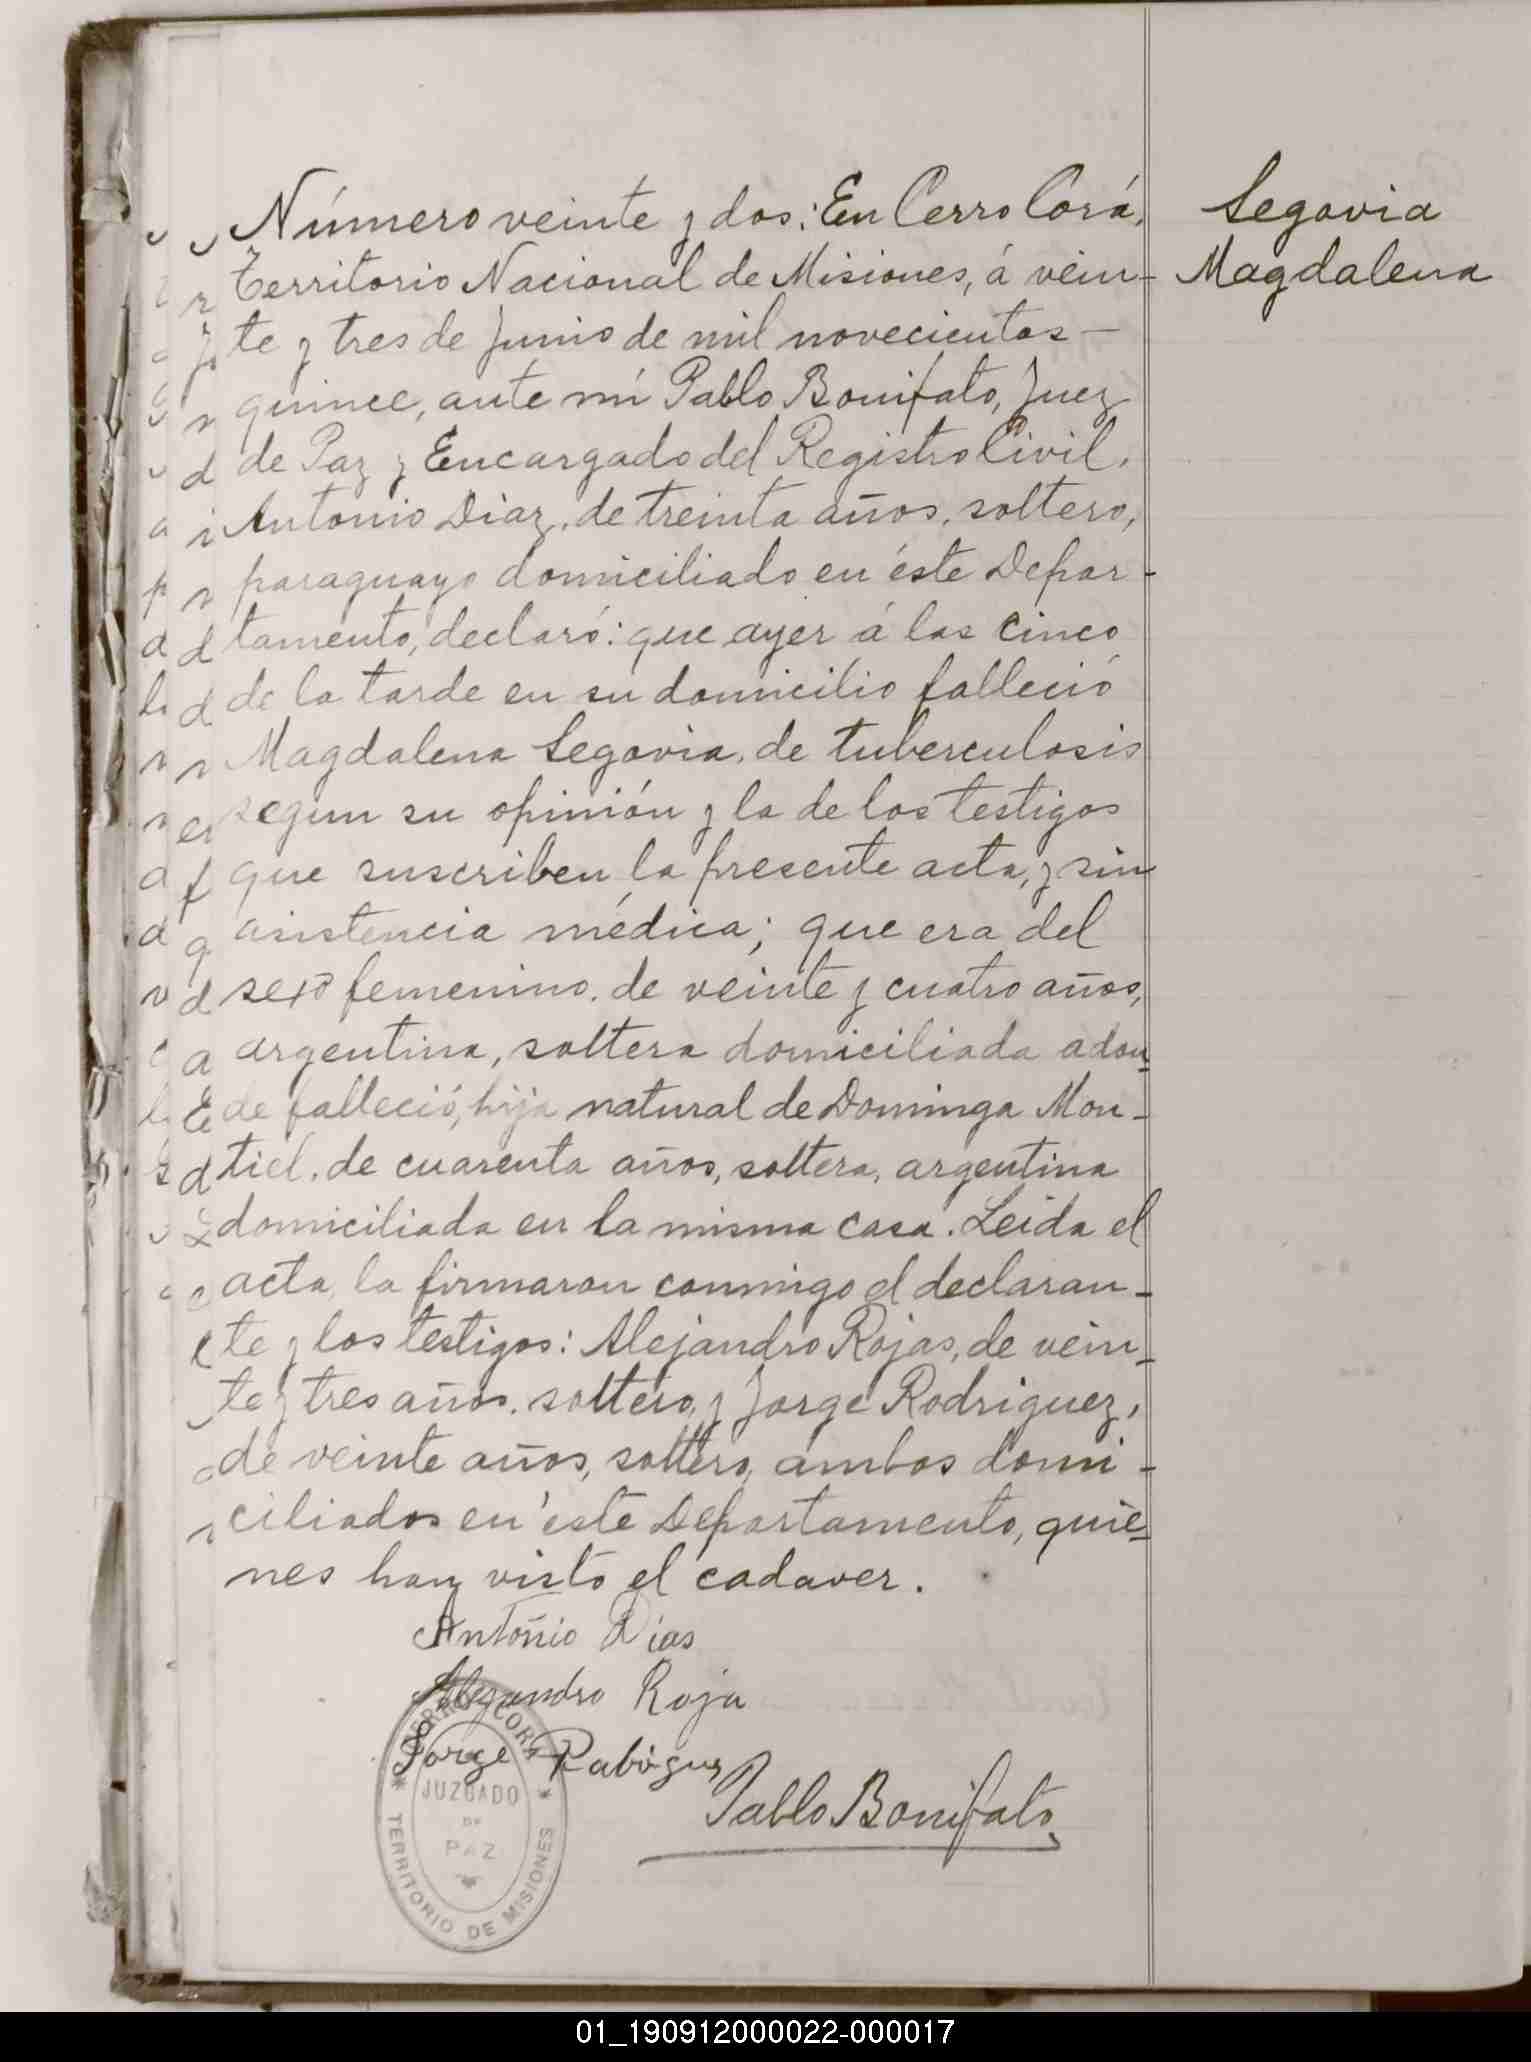 Número veinte y dos: En Cerro Corá,
Territorio Nacional de Misiones, á vein-
te y tres de Junio de mil novecientos —
quince, ante mí Pablo Bonifato, Juez
de Paz y Encargado del Registro Civil,
Antonio Diaz, de treinta años, soltero,
paraguayo domiciliado en éste Depar-
tamento, declaró: que ayer á las cinco
de la tarde en su domicilio falleció
Magdalena Segovia, de tuberculosis
segun su opinión y la de los testigos
que suscriben la presente acta, y sin
asistencia médica; que era del
sexo femenino, de veinte y cuatro años,
argentina, soltera domiciliada adon-
de falleció, hija natural de Dominga Mon-
tiel, de cuarenta años, soltera, argentina
domiciliada en la misma casa. Leida el
acta, la firmaron conmigo el declaran-
te y los testigos: Alejandro Rojas, de vein-
te y tres años, soltero, y Jorge Rodriguez,
de veinte años, soltero, ambos domi-
ciliados en éste Departamento, quie-
nes han visto el cadaver.
Segovia
Magdalena
Antoñio Dias
Alejandro Roja
Jorge
Pablo Bonifato
CERRO CORÁ
JUZGADO
DE
PAZ
TERRITORIO DE MISIONES
01_190912000022-000017